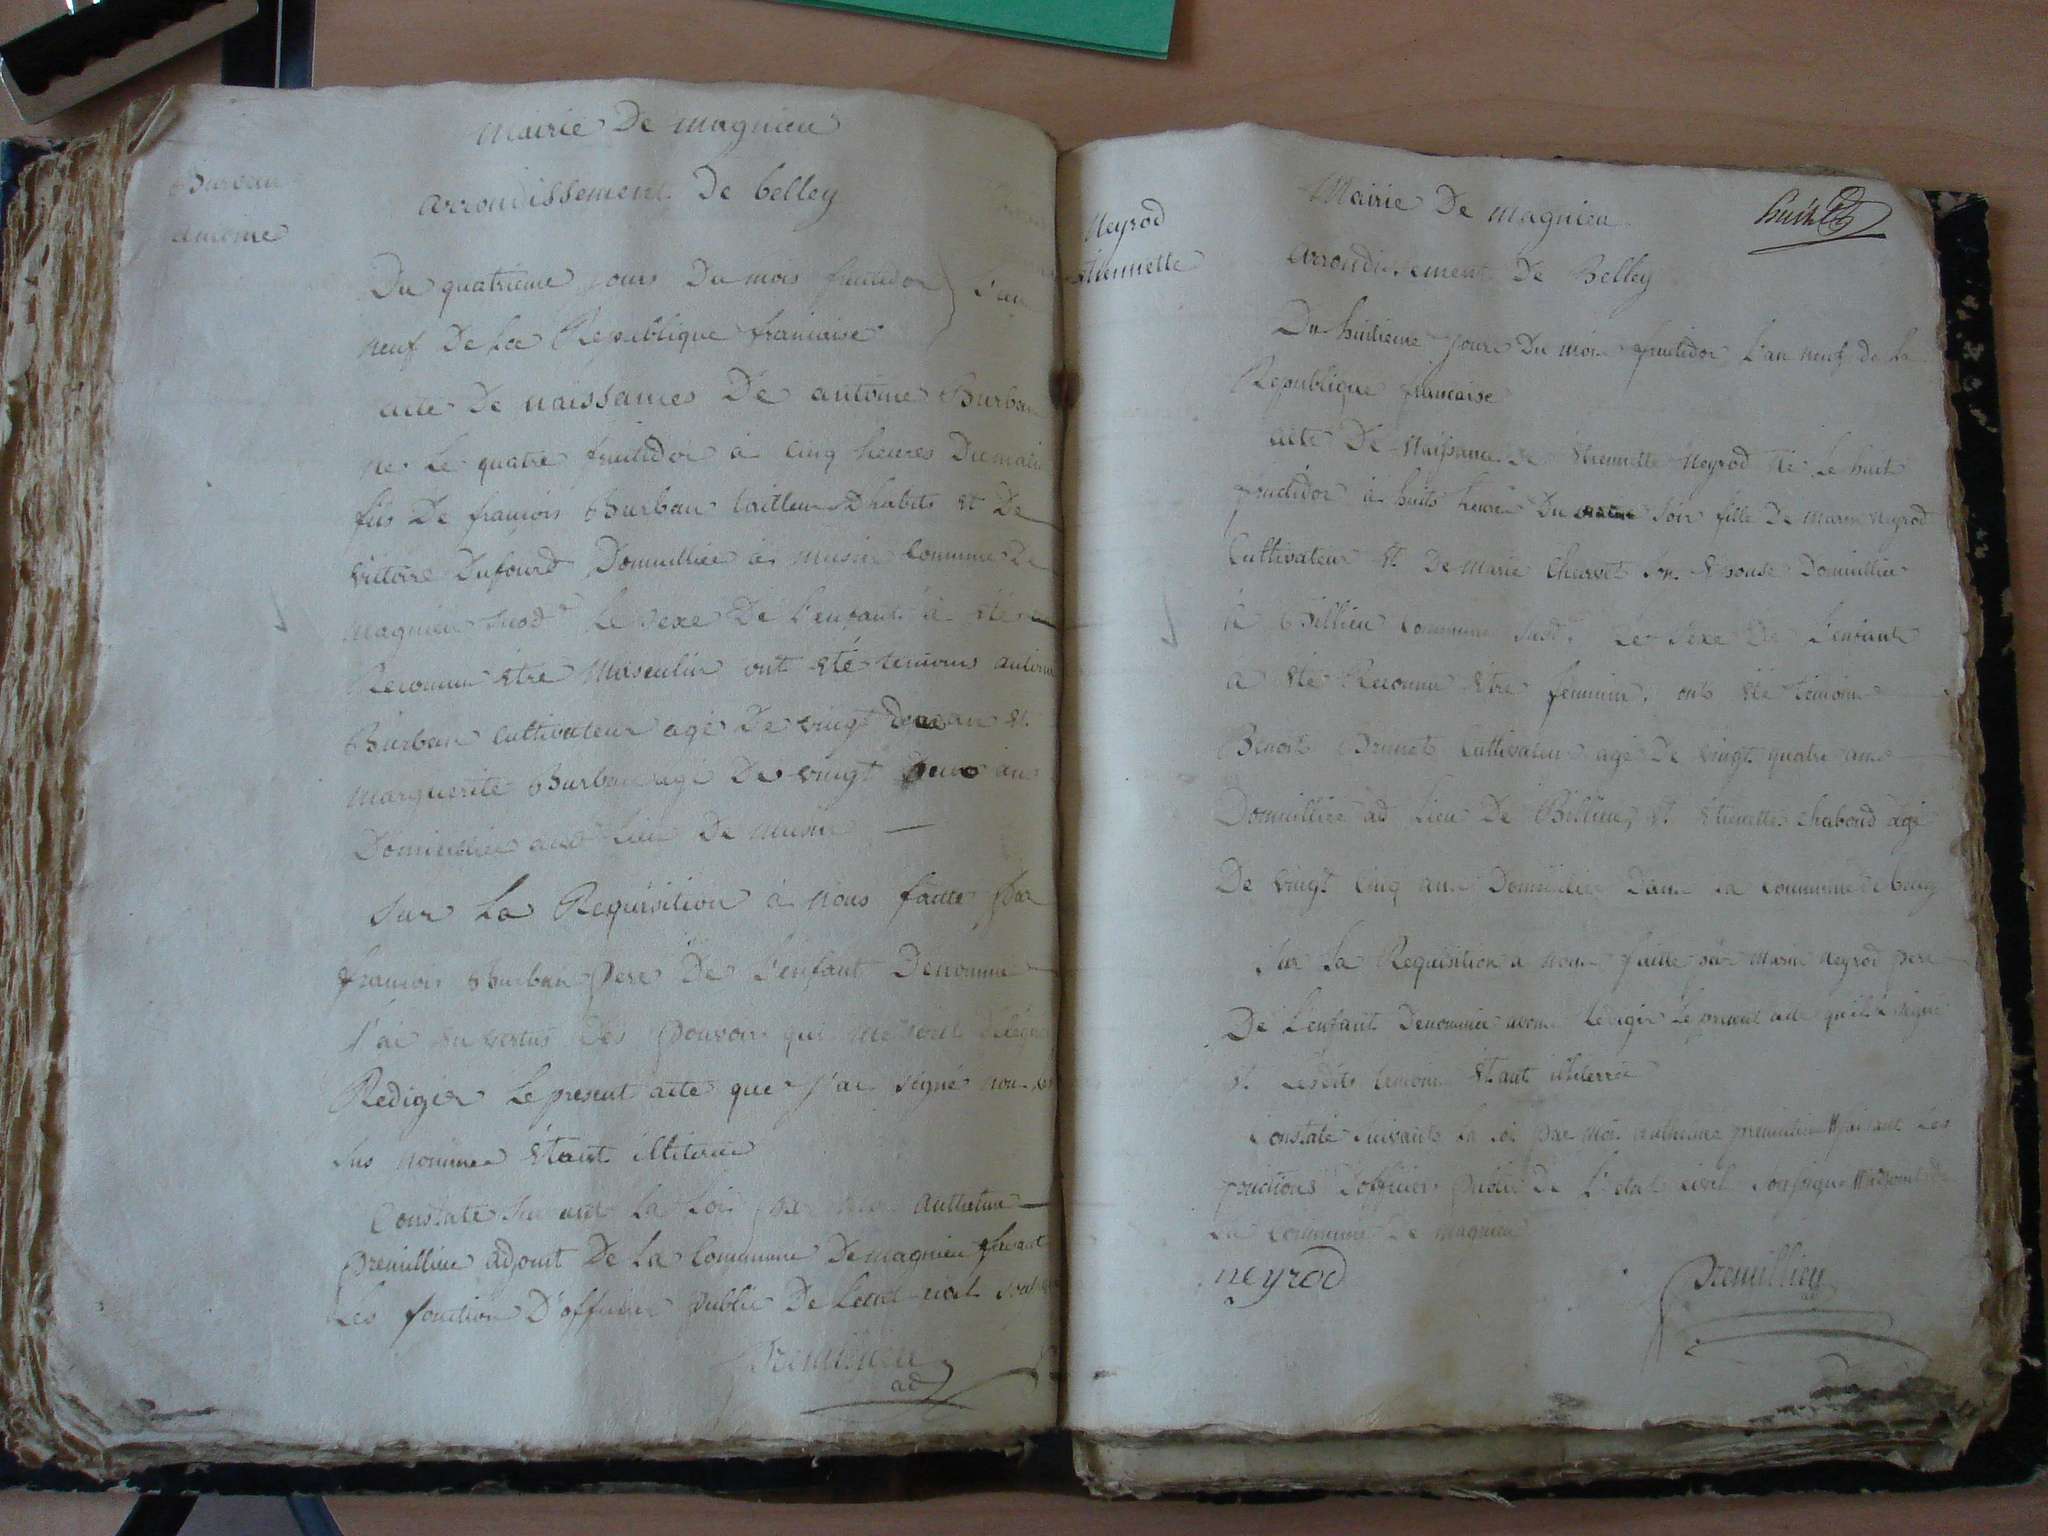 Mairie De magnieu
Burban
antoine
arrondissement De belley
Du quatrieme jours Du mois fructidor L'an
neuf De La Republique francaise
acte De naissances De antoine Burban
ne Le quatre fructidor à cinq heures Du matin
fils De françois Burban tailleur D'habits et De
victoire Dufourd Domicilliée à musin commune De
magnieu susd. Le sexe De L'enfant à été
Reconnu étre Masculin ont eté temoins antoine
Burban cultivateur agé De vingt an et
Marguerite Burban agé De vingt deux an
Domicilié aud Lieu De musin
Sur La Requisition à nous faitte par
francois Burban pere De L'enfant Denommé
J'ai en vertus Des pouvoir qui me sont délégué
Rediger Le present acte que j'ai signé non les
sus nommee étant illiteree
Constaté suivant La Loi par moi antheime
premillieu adjoint De La Commune De magnieu faisant
Les fonction D'officier public De Letat civil
premillieu
ad
Neyrod
etiennette
Mairie De magnieu
huit
arrondissement De Belley
Du huitieme jours Du mois fructidor L'an neuf de la
Republique francaise
acte De Naissance De etiennette Neyrod Né Le huit
fructidor à huits heures Du soir fille De marin neyrod
Cultivateur et De marie Chervet son Epouse Domicilliée
à Billieu commune susd. Le sexe De L'enfant
à été Reconnu étre feminin, ont été temoins
Benoit Brunet Cultivateur agé De vingt quatre ans
Domicilliée ad Lieu De Billieu, et etiennette chaboud agé
De vingt cinq ans Domicilié dans la commune de
Sur La Requisition a nous faitte par marin neyrod pere
De L'enfant Denommée avons Rediger Le present acte qu'il à signé
et Lesdits temoins étant illiterée
Constaté suivants La Loi par moi antheime premillieu faisant Les
fonctions D'officier public De L'etat civil soussigné
La commune De magnieu
neyrod
premillieu